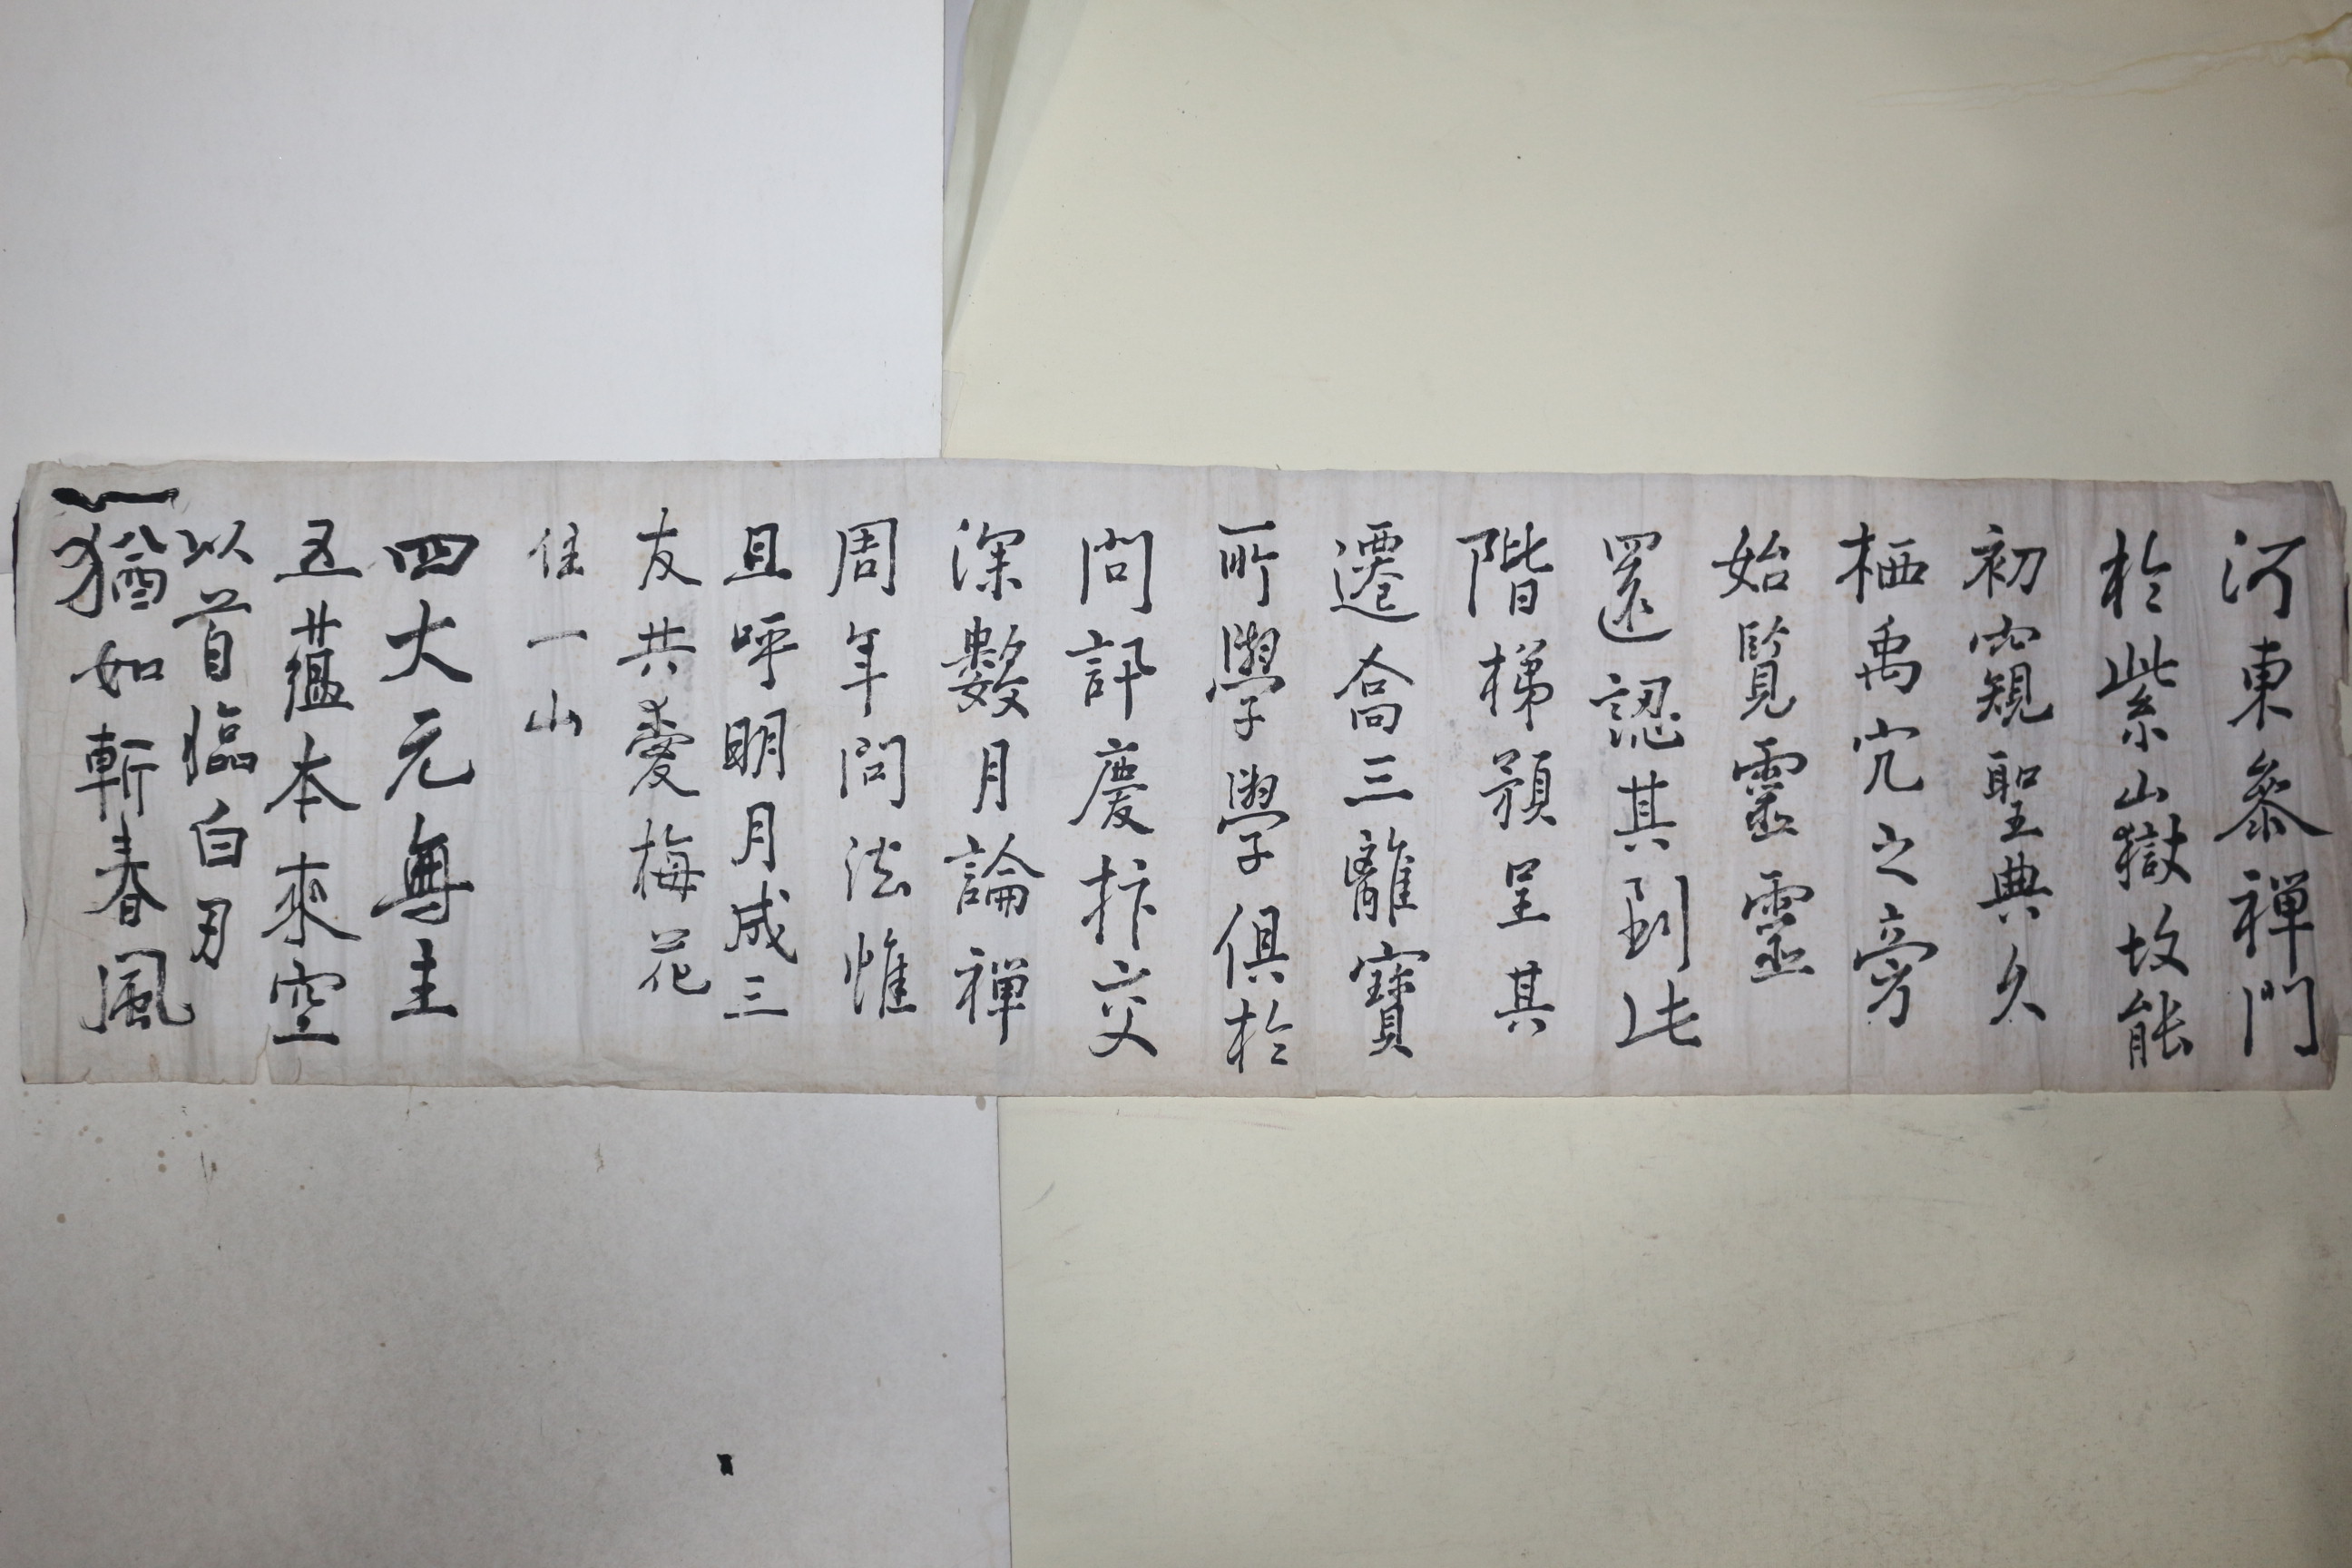 河東參禅門
於紫山嶽故能
初窺聖典久
栖禹穴之旁
始覧靈靈
還認其到此
階梯預呈其
遷喬三離寶
所學學俱於
問訊慶抃交
深數月論禅
周年問法惟
且呼明月成三
友共愛梅花
住一山
四大元無主
五蘊本來空
以首臨白刃
猶如斬春風